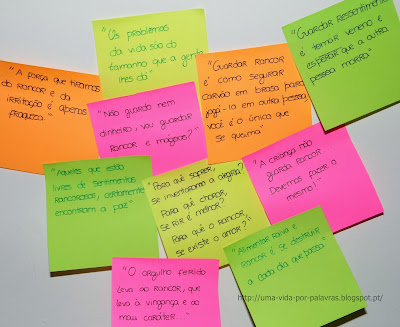 "Os problemas
da vida são do
tamanho que a gente
lhes dá"
"Guardar Ressentimento
é tomar veneno e
esperar que a outra
pessoa morra"
"A força que tiramos
do rancor e da
irritação é apenas
fraqueza."
"Não guardo nem
dinheiro, vou guardar
rancor e mágoas?"
"Guardar rancor
é como segurar
carvão em brasa para
jogá-lo em outra pessoa,
você é o único que
se queima"
"Aqueles que estão
livres de sentimentos
rancorosos, certamente
encontram a paz"
"Para quê sofrer,
se inventaram a alegria?
Para quê chorar,
se rir é melhor?
Para quê o rancor,
se existe o amor?"
"A criança não
guarda rancor.
Devemos fazer o
mesmo!"
"O orgulho ferido
leva ao rancor, que
leva à vingança e ao
mau caráter..."
"Alimentar raiva e
rancor é se destruir
a cada dia que passa"
http://uma-vida-por-palavras.blogspot.pt/